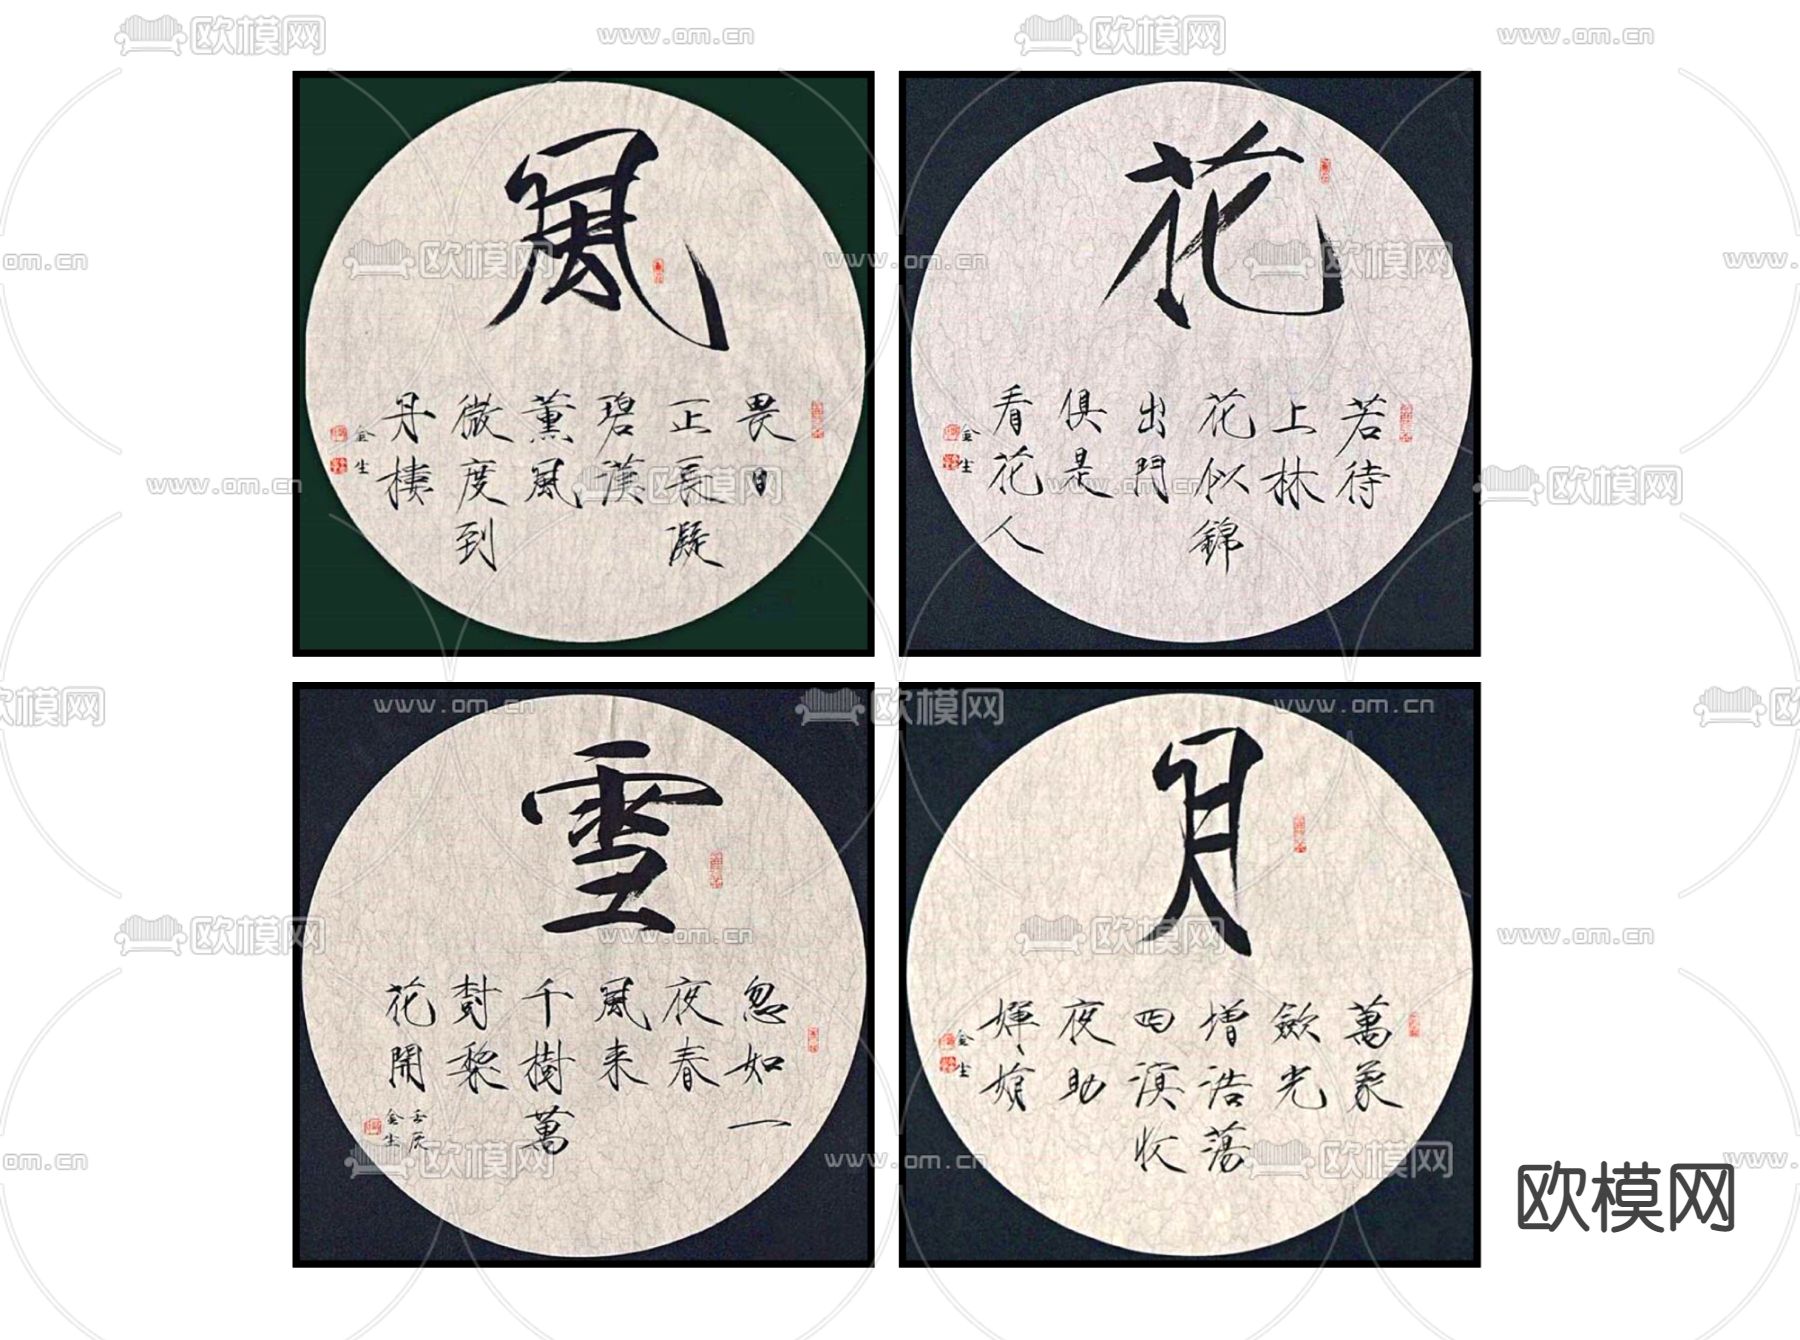 風
畏日
正長凝
碧漢
薰風
微度到
丹棲
金生
花
若待
上林
花似錦
出門
俱是
看花人
金生
雪
忽如一
夜春
風来
千樹萬
樹黎
花開
壬辰
金生
月
萬象
斂光
增浩蕩
四溟收
夜助
嬋娟
金生
欧模网
www.om.cn